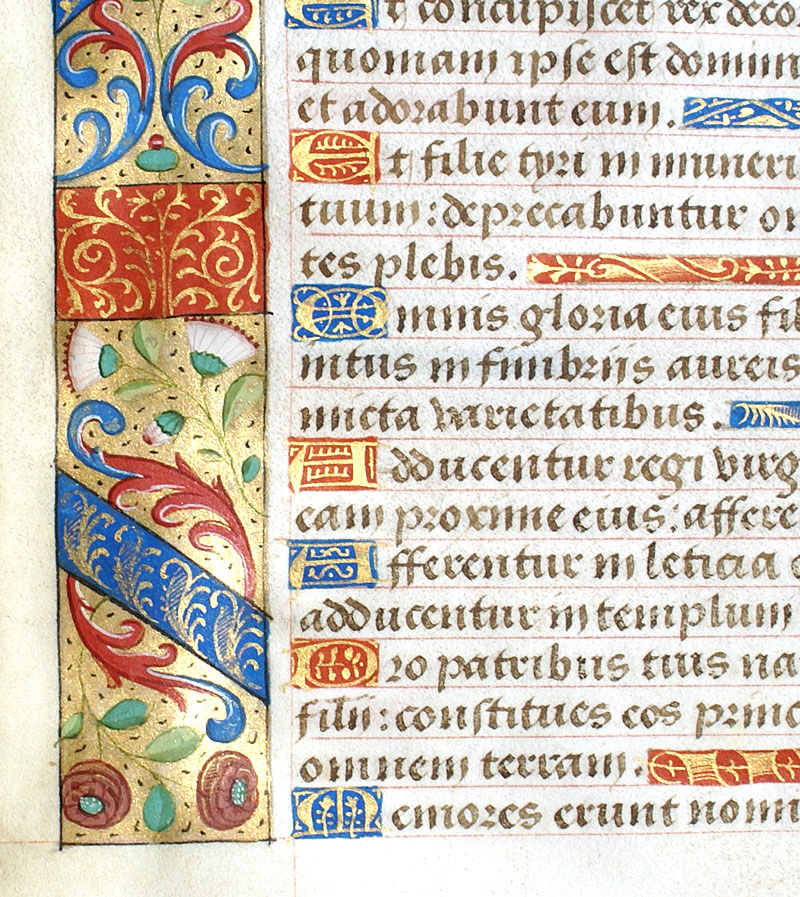 Et concupiscet rex deco
quoniam ipse est domin
et adorabunt eum.
Et filie tyri in muneri
tuum: deprecabuntur om
tes plebis.
Omnis gloria eius fil
intus in fimbriis aureis
micta varietatibus.
Adducentur regi virg
eam proxime eius: affere
Afferentur in leticia e
adducentur in templum
Pro patribus tuis na
filii: constitues eos princ
omnem terram.
Memores erunt nomi